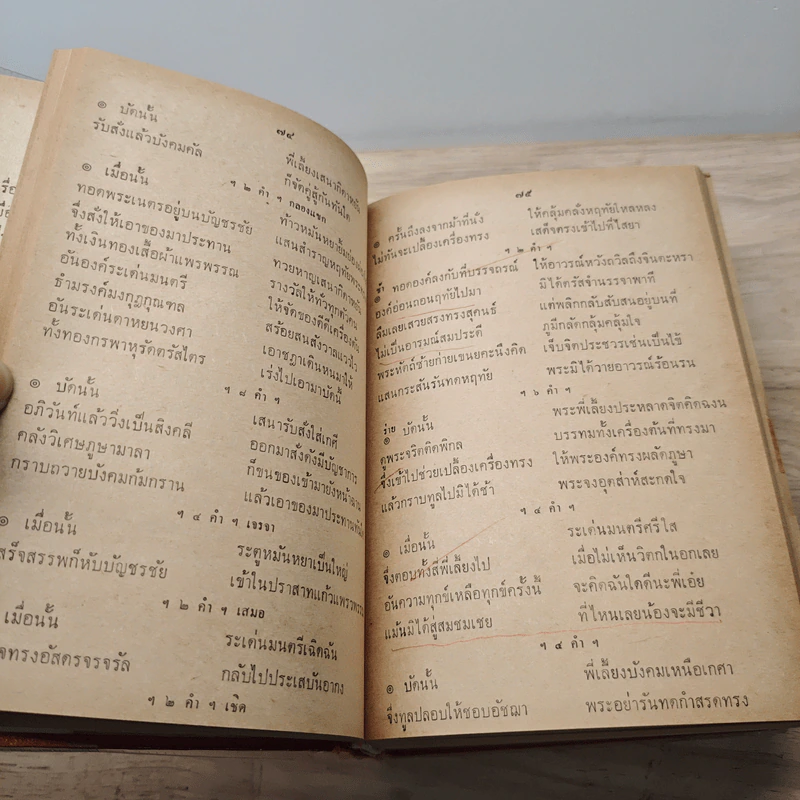 ๗๔
๑ บัดนั้น พี่เลี้ยงเสนากิดาหยัน
รับสั่งแล้วบังคมคัล ก็จัดคู่สู้กันทันใด
ฯ ๒ คำ ฯ กลองแขก
๑ เมื่อนั้น ท้าวหมันหยา
ทอดพระเนตรอยู่บนบัญชรชัย แสนสำราญหฤทัย
จึงสั่งให้เอาของมาประทาน ทวยหาญเสนากิดาหยัน
ทั้งเงินทองเสื้อผ้าแพรพรรณ รางวัลให้ทั่วทุกตัวคน
อันองค์ระเด่นมนตรี ให้จัดของดีดีเครื่องต้น
ธำมรงค์มงกุฎกุณฑล สร้อยสนสังวาลแวววไว
อันระเด่นดาหยนวงศา เอาชฎาเดินหนมาให้
ทั้งทองกรพาหุรัดตรัสไตร เร่งไปเอามาบัดนี้
ฯ ๘ คำ ฯ
๑ บัดนั้น เสนารับสั่งใส่เกศี
อภิวันท์แล้ววิ่งเป็นสิงคลี ออกมาสั่งดังมีบัญชาการ
คลังวิเศษภูษามาลา ก็ขนของเข้ามายังหน้าฉาน
กราบถวายบังคมก้มกราน แล้วเอาของมาประทาน
ฯ ๔ คำ ฯ เจรจา
๑ เมื่อนั้น ระตูหมันหยาเป็นใหญ่
เสร็จสรรพก็หับบัญชรชัย เข้าในปราสาทแก้วแพรวพรรณ
ฯ ๒ คำ ฯ เสมอ
เมื่อนั้น ระเด่นมนตรีเฉิดฉัน
ทรงอัสดรจรจรัล กลับไปประเสบันอากง
ฯ ๒ คำ ฯ เชิด
๗๕
๑ ครั้นถึงลงจากม้าที่นั่ง ให้คลุ้มคลั่งหฤทัยใหลหลง
ไม่ทันจะเปลื้องเครื่องทรง เสด็จตรงเข้าไปที่ไสยา
ฯ ๒ คำ ฯ
ช้า ทอดองค์ลงกับที่บรรจถรณ์ ให้อาวรณ์หวังถวิลถึงจินตะหรา
องค์อ่อนถอนฤทัยไปมา มิได้ตรัสจำนรรจาพาที
ลืมเลยเสวยสรงทรงสุคนธ์ แต่พลิกกลับสับสนอยู่บนที่
ไม่เป็นอารมณ์สมประดี ภูมีกลัดกลุ้มคลุ้มใจ
พระหัตถ์ซ้ายก่ายเขนยคะนึงคิด เจ็บจิตประชวรเช่นเป็นไข้
แสนกระสันรันทดหฤทัย พระมิได้วายอาวรณ์ร้อนรน
ฯ ๖ คำ ฯ
ร่าย
๑ บัดนั้น พระพี่เลี้ยงประหลาดจิตคิดฉงน
ดูพระจริตติดพิกล บรรทมทั้งเครื่องต้นที่ทรงมา
จึงเข้าไปช่วยเปลื้องเครื่องทรง ให้พระองค์ทรงผลัดภูษา
แล้วกราบทูลไปมิได้ช้า พระจงอุตส่าห์สะกดใจ
ฯ ๔ คำ ฯ
๑ เมื่อนั้น ระเด่นมนตรีศรีใส
จึงตอบทั้งสี่พี่เลี้ยงไป เมื่อไม่เห็นวิตกในอกเลย
อันความทุกข์เหลือทุกข์ครั้งนี้ จะคิดฉันใดดีนะพี่เอ๋ย
แม้นมิได้สู่สมชมเชย ที่ไหนเลยน้องจะมีชีวา
ฯ ๔ คำ ฯ
๑ บัดนั้น พี่เลี้ยงบังคมเหนือเกศา
จึงทูลปลอบให้ชอบอัชฌา พระอย่ารันทดกำสรดทรง